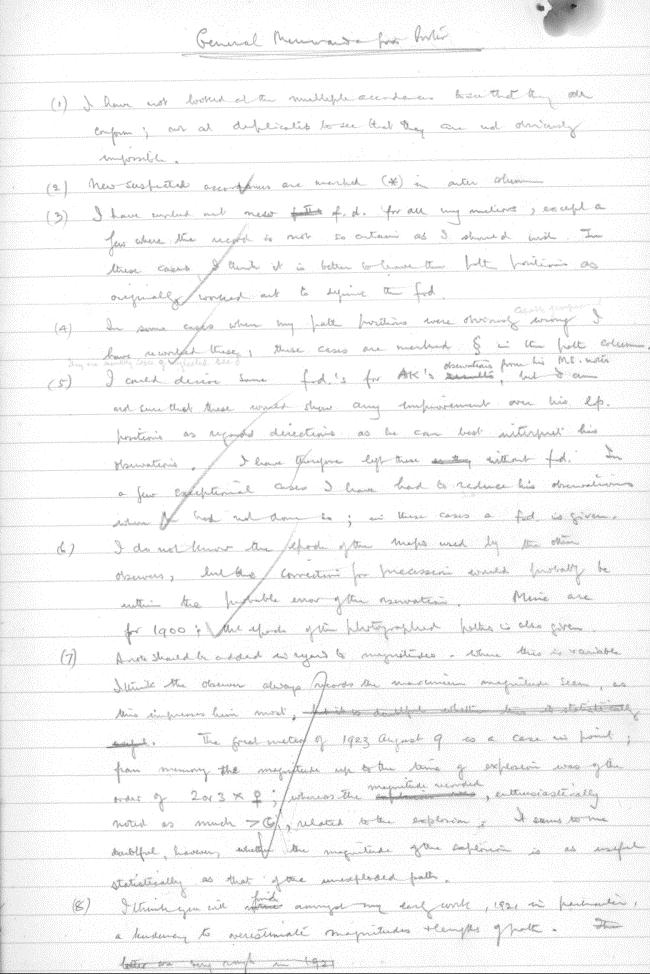 General Memoranda from Porter
(1) I have not looked at the multiple accordances to see that they all
conform; nor at duplicates to see that they are not obviously
impossible.
(2) New suspected accordances are marked (*) in outer column
(3) I have worked out new f.d. for all my meteors, except a
few where the record is not so certain as I should wish. In
these cases I think it is better to leave the path positions as
originally worked out to define the f.d.
(4) In some cases when my path positions were obviously wrong I
have reworked these; these cases are marked § in the path column.
(5) I could derive some f.d.'s for AK's observations from his MS. notes, but I am
not sure that these would show any improvement over his l.p.
positions as regards directions as he can best interpret his
observations. I have therefore left these without f.d. In
a few exceptional cases I have had to reduce his observations
when he had not done so; in these cases a f.d. is given.
(6) I do not know the epoch of the maps used by the other
observers, but the correction for precession would probably be
within the probable error of the observation. Mine are
for 1900; the epoch of the photographed paths is also given.
(7) A note should be added in regard to magnitudes. Where this is variable
I think the observer always records the maximum magnitude seen, as
this impresses him most, but it is doubtful whether this is statistically
useful. The great meteor of 1923 August 9 is a case in point;
from memory the magnitude up to the time of explosion was of the
order of 2 or 3 × ♀; whereas the magnitude recorded, enthusiastically
noted as much > ☾, related to the explosion. It seems to me
doubtful, however, whether the magnitude of the explosion is as useful
statistically as that of the unexploded path.
(8) I think you will find amongst my early work, 1921 in particular,
a tendency to overestimate magnitudes & lengths of path. The
latter are very rough in 1921